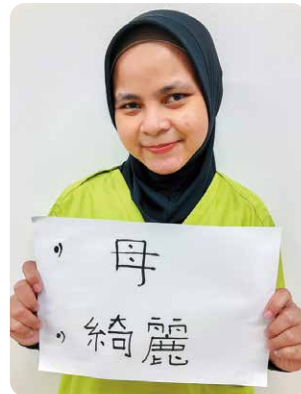 •) 母
•) 綺麗